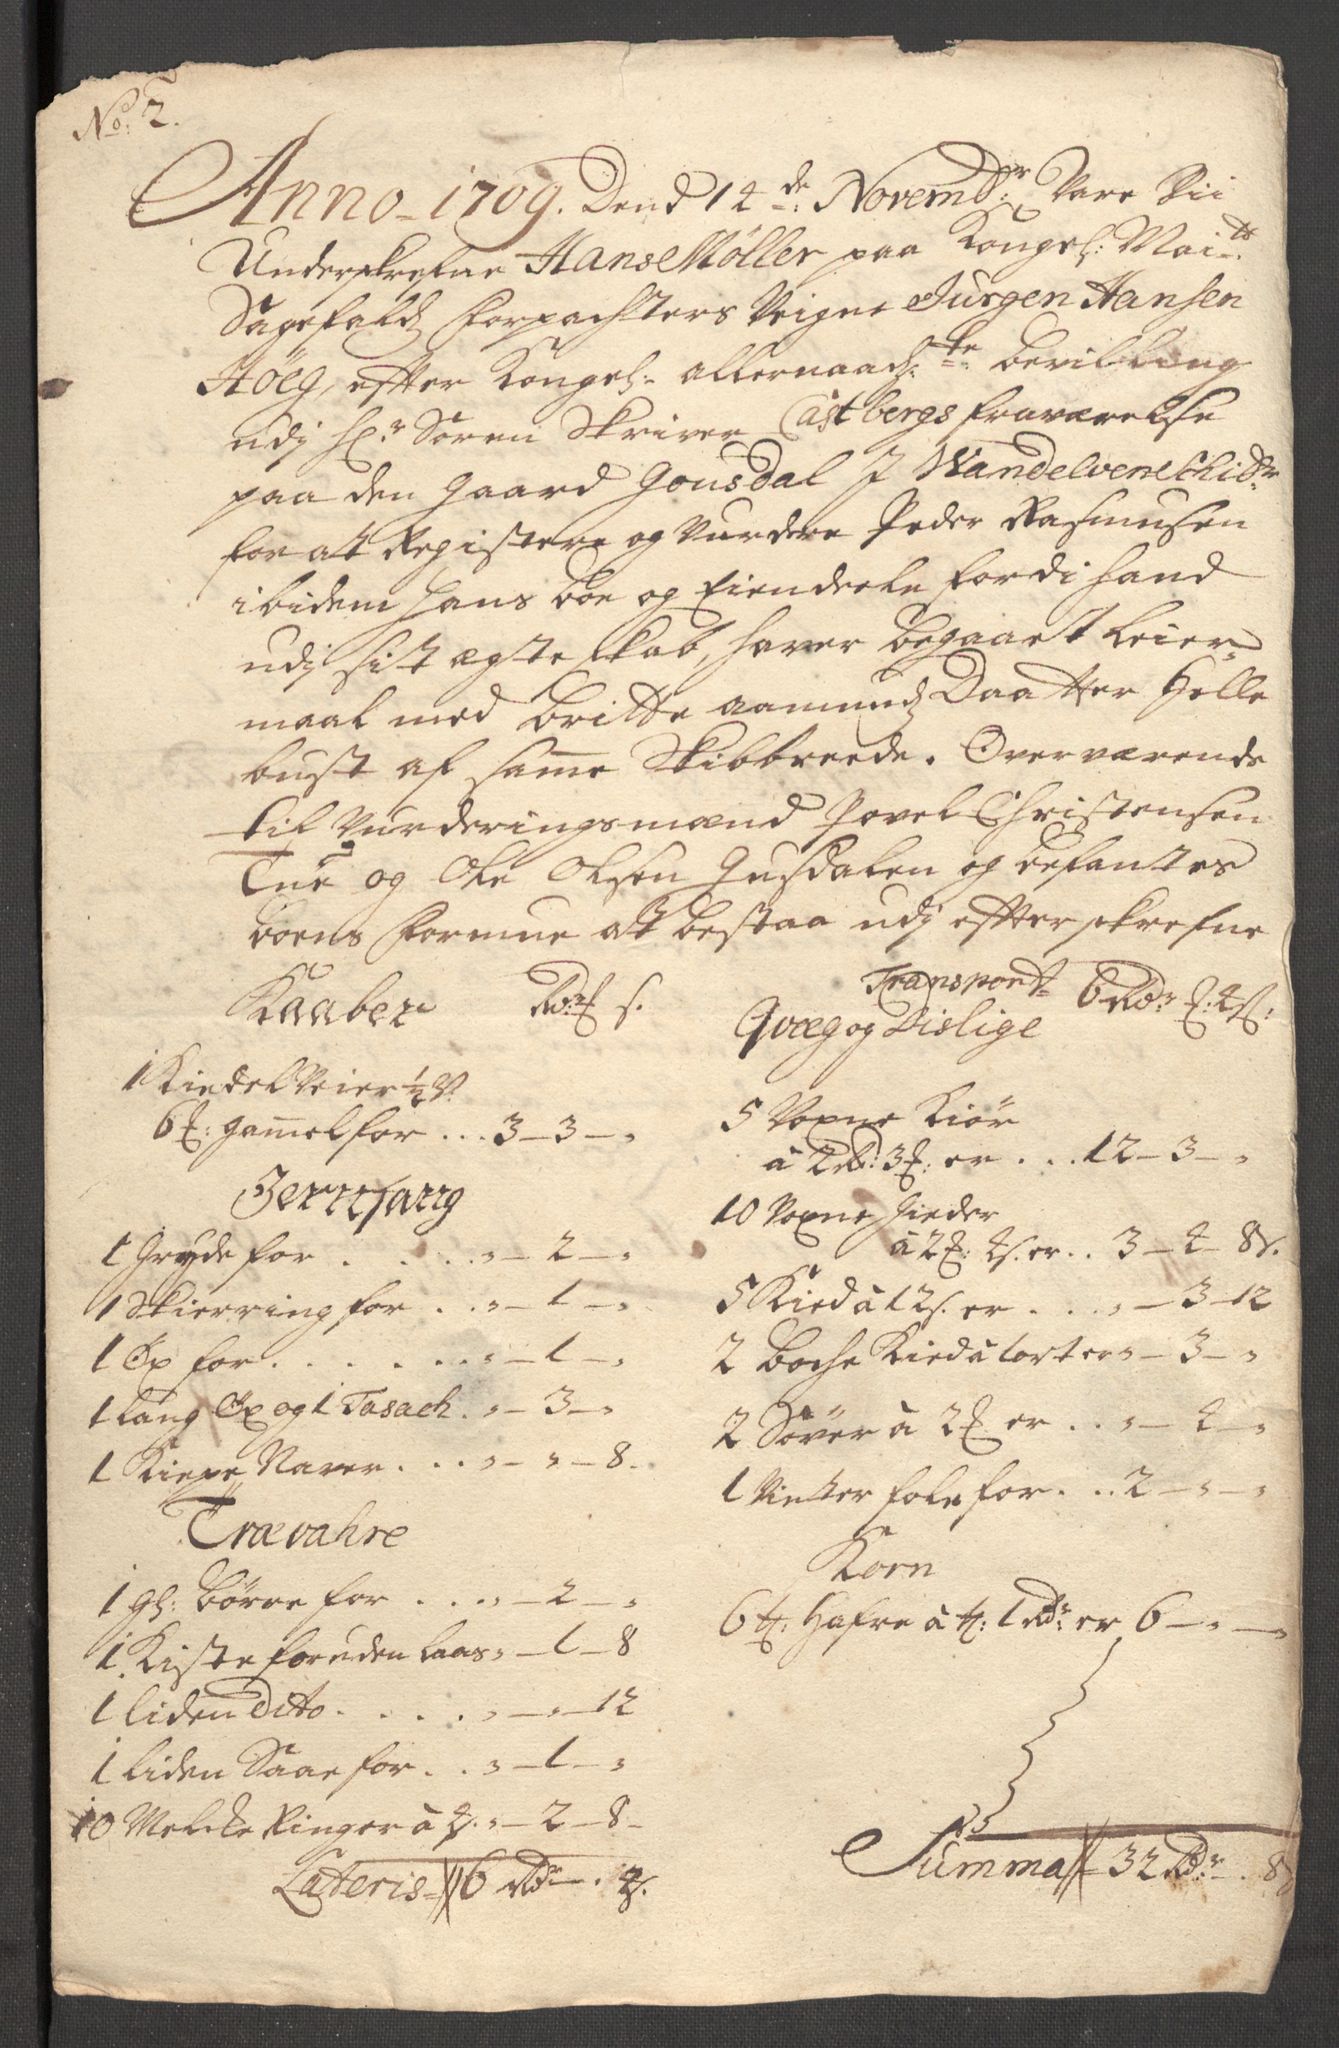 No: 2.
Anno 1709. Dend 14 de Novembr: Vare Vii
Underskrefne Hans Møller paa Kongel: Mai:ts
Sagefalds Forpachters Veigne Jurgen Hansen
Höeg, efter Kongel: allernaads:te bevilling
udj Hr: Sören Skriver Castbergs fraværelse
paa den gaard Gousdal J Wandelven Schibr:
for at Registere og Vurdere Peder Rasmusen
ibidem hans boe og Eiendeele fordi hand
udj sit ægteskab, haver begaaet Leier=
maal med Britte aamunds Daatter Helle
bust af samme Skibbreede. Overværende
til Vurderingsmænd Povel Christensen
Tue og Ole Olsen Gusdalen og befantes
boens Formue at bestaa udj efterskrefne
Kaaber Rdr: ℔ s.
1 Kiedel Veier ½ V:
6 ℔: gammel for ... 3 — 3 — "
Jernfang
1 Gryde for . . . . . " — 2 — "
1 Skierring for . . . " — 1 — "
1 Öx for . . . . . . " — 1 — "
1 lang Öx og 1 Tasach . " — 3 — "
1 Kiepe Naver . . . " — " — 8
Trævahre
1 gl: börre for . . . " — 2 — "
1 Kiste foruden laas " — 1 — 8
1 liden Dito . . . . " — " — 12
1 liden Saae for . . " — 1 — "
10 Melcke Ringer à 4 s. " — 2 — 8
Lateris 6 Rdr — . 4 s.
Transport 6 Rdr: ℔: 4 s:
Qvæg og Dislige
5 Voxne Kiör
à 2 Rd: 3 ℔: er . . . 12 — 3 — "
10 Voxne Gieder
à 2 ℔: 4 s. er . . 3 — 4 — 8 s.
5 Kied à 12 s. er . . . " — 3 — 12
2 Boche Kied à 1 ort er " — 3 — "
2 Söver à 2 ℔ er . . " — 4 — "
1 Vinter fole for . . . 2 — " — "
Korn
6 tr: Hafre à tr: 1 Rdr: er 6 — " — "
Summa 32 Rdr: — . 8 s